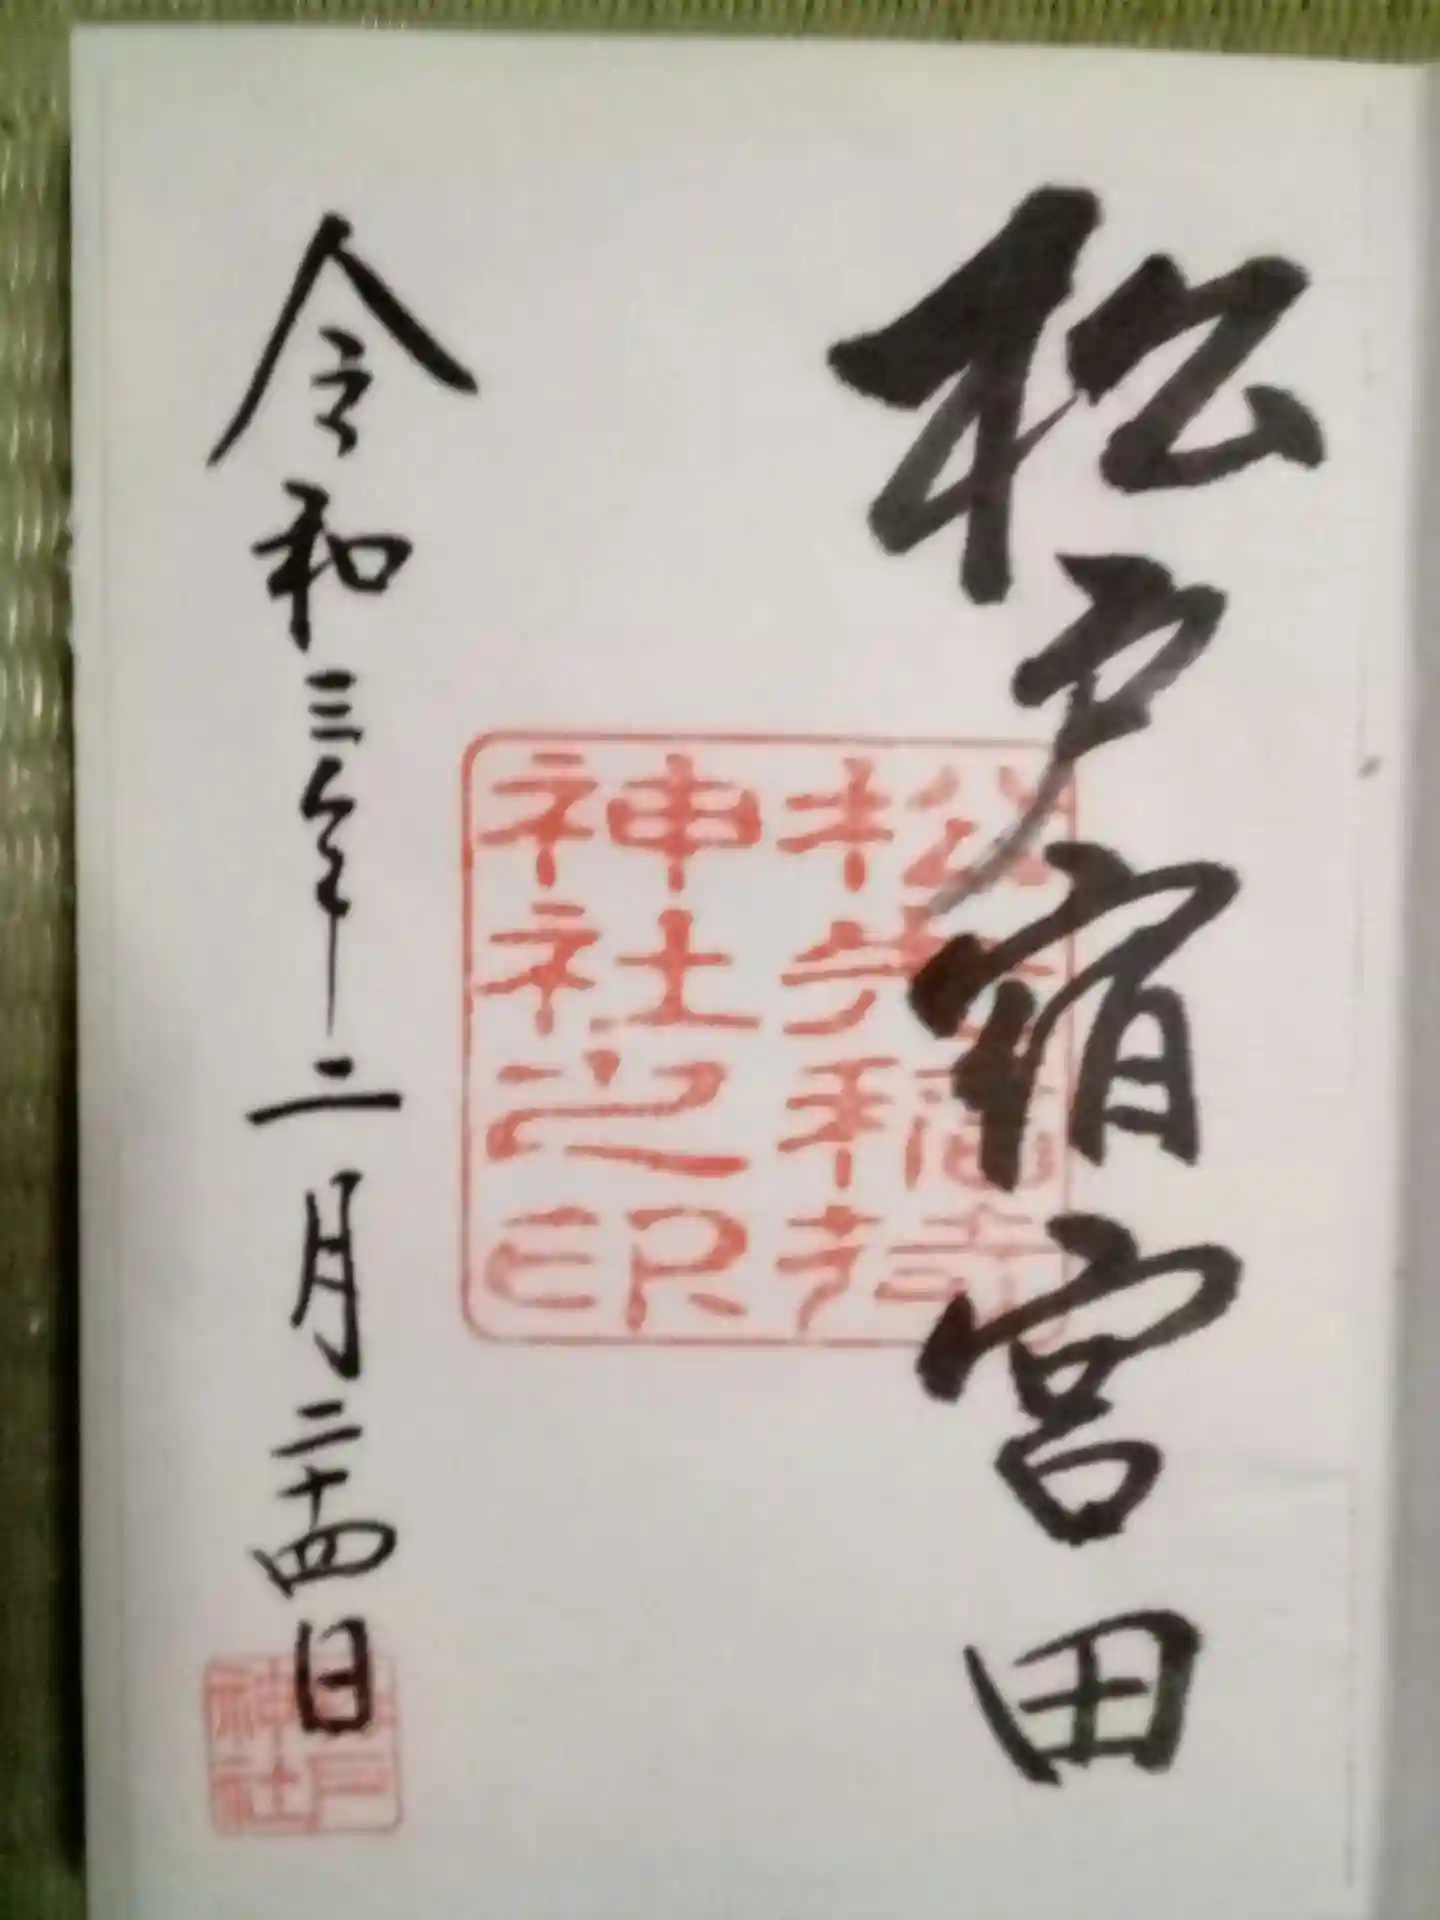 松戸宿宮田
松先稲荷
神社之印
令和三年二月二十四日
松戸
神社